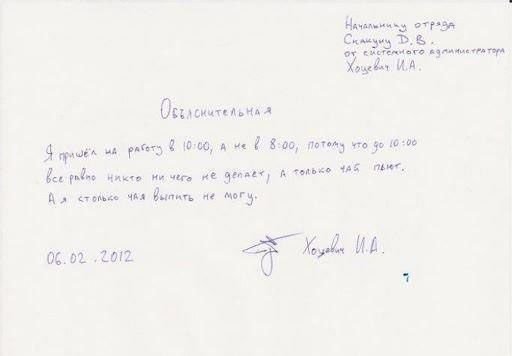 Начальнику отряда
Скакуну Д.В.
от системного администратора
Хоцевич И.А.
Объяснительная
Я пришёл на работу в 10:00, а не в 8:00, потому что до 10:00
все равно никто ни чего не делает, а только чай пьют.
А я столько чая выпить не могу.
06.02.2012 Хоцевич И.А.
7